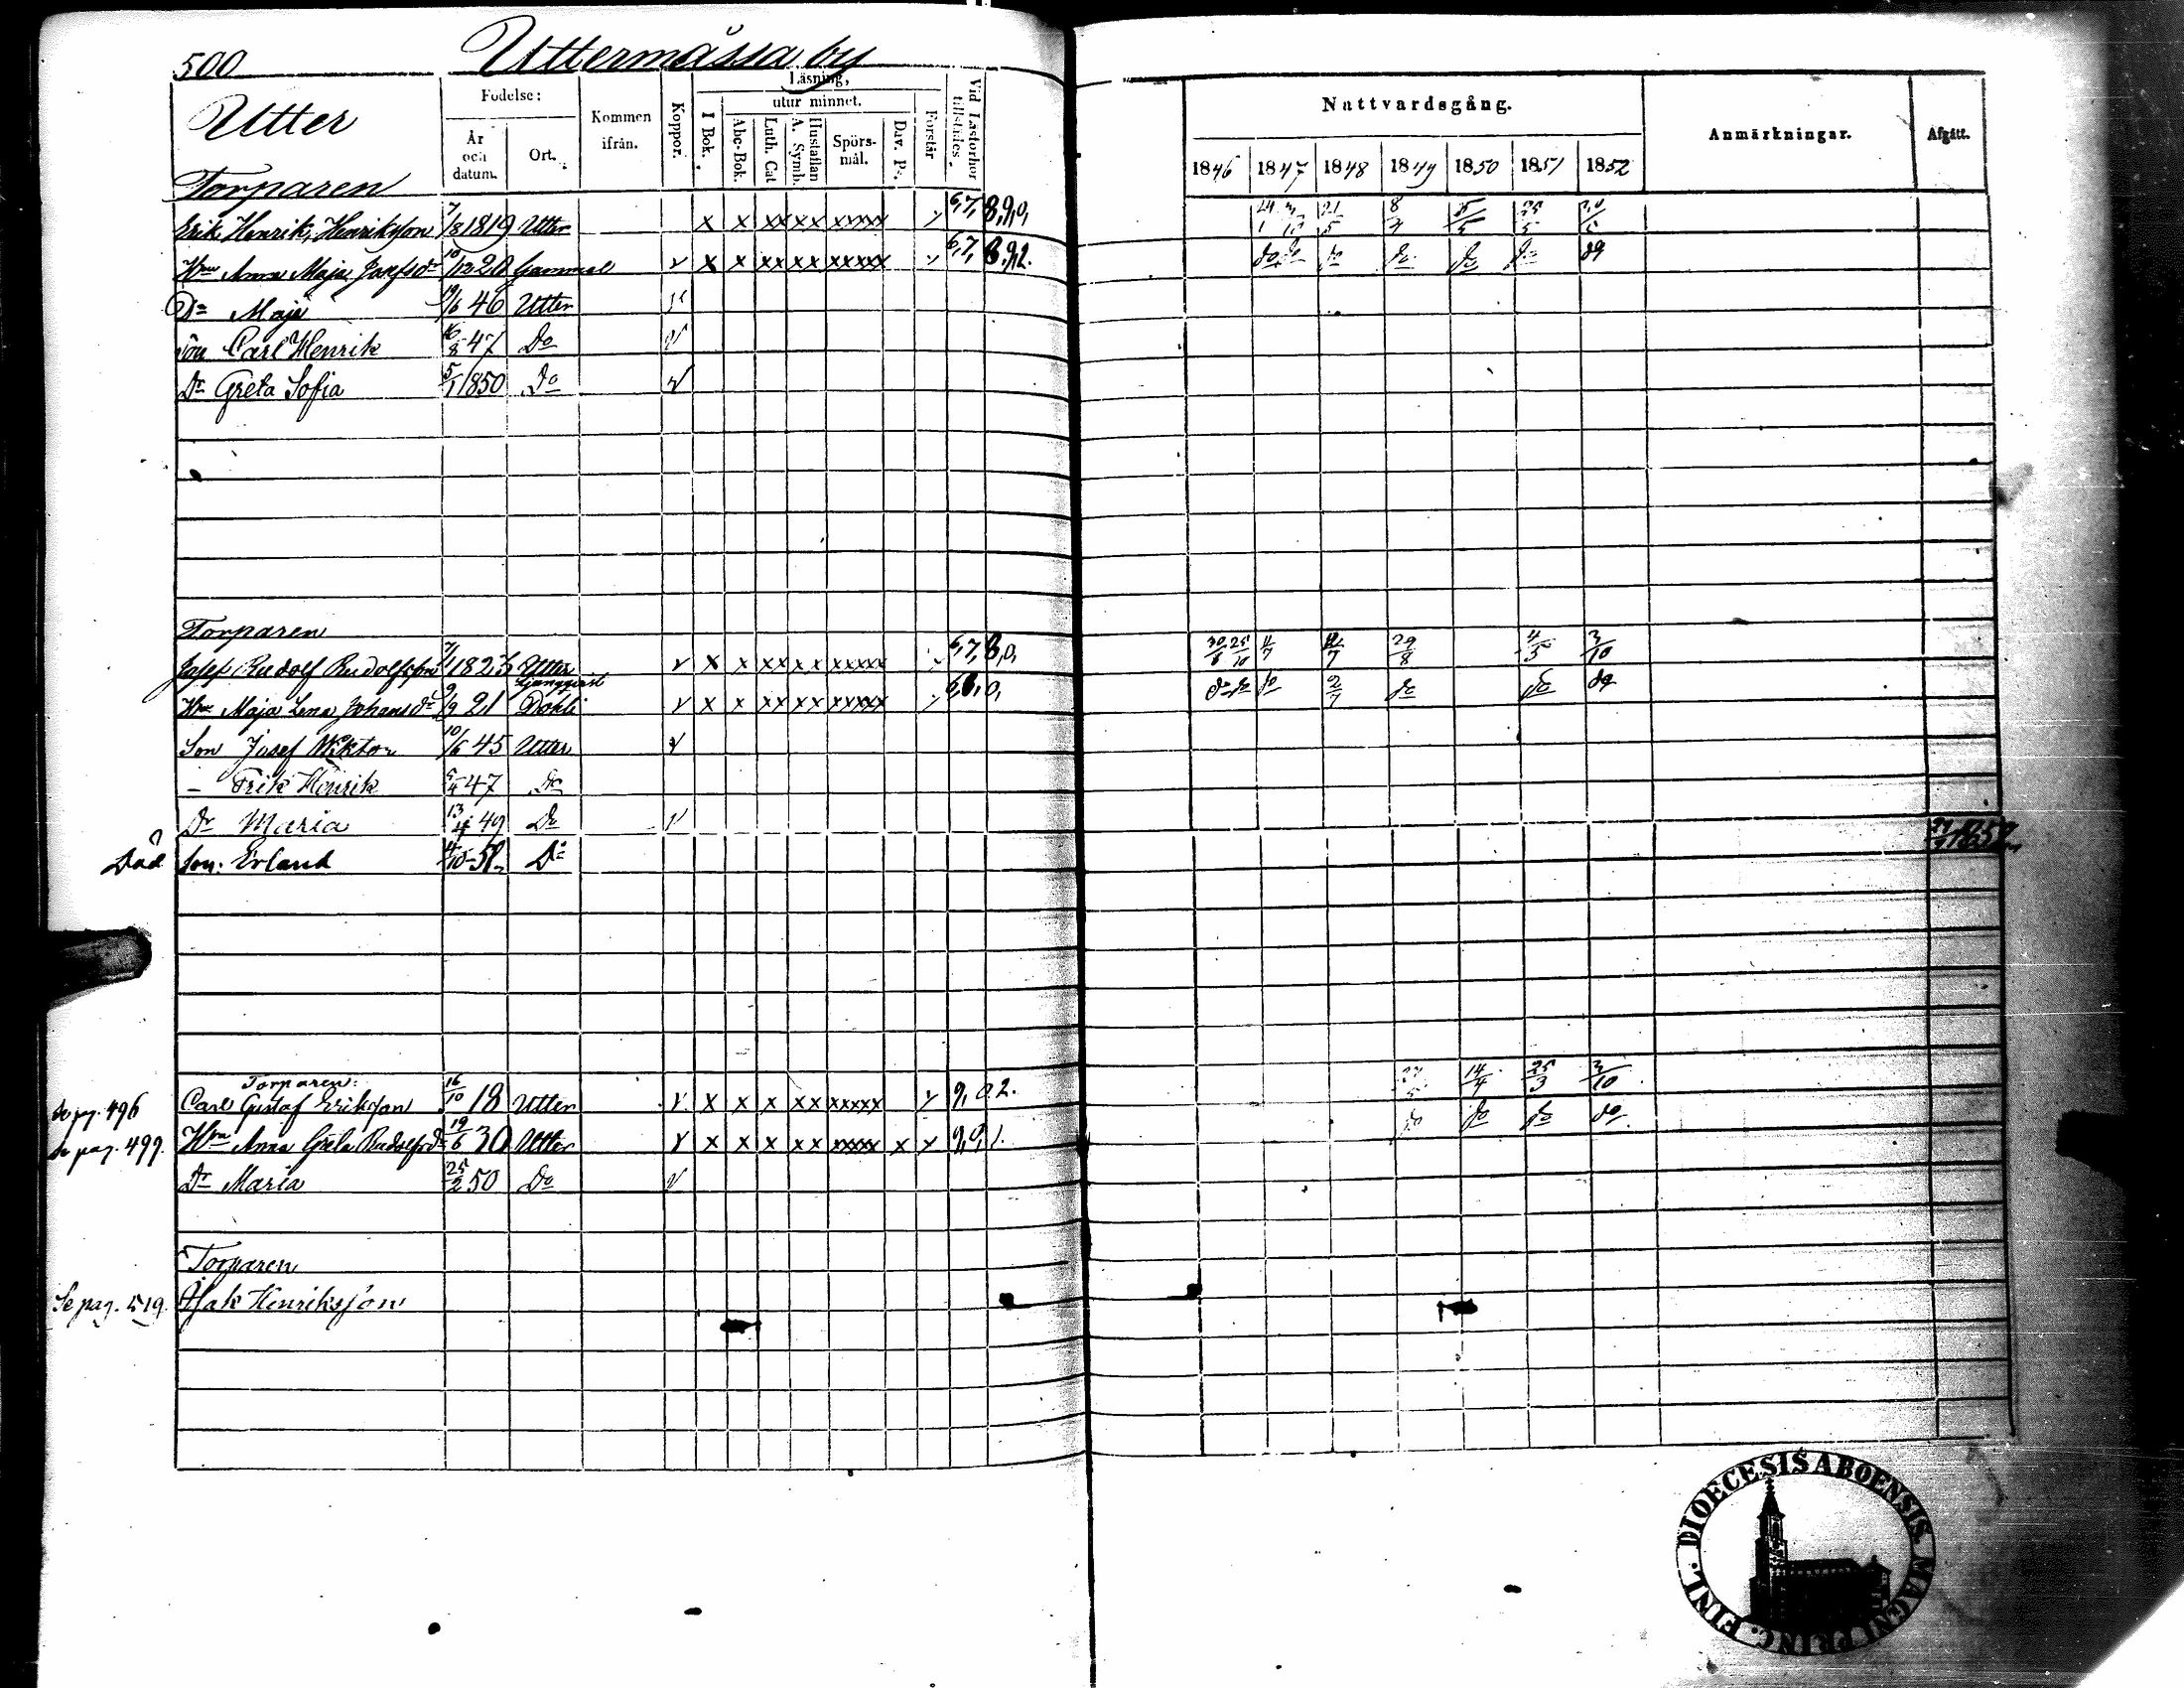 500 Uttermässa by
Utter
Födelse:
År och datum.
Ort.
Kommen ifrån.
Koppor.
Läsning,
I Bok.
utur minnet.
Abc-Bok.
Luth. Cat
Hustaflan A. Symb.
Spörs-mål.
Dav. Ps.
Förstår
Vid Läsförhör tillstädes.
Nattvardsgång.
1846 1847 1848 1849 1850 1851 1852
Anmärkningar.
Afgått.
Torparen
Erik Henrik Henriksson 7/8 1819 Utter x x xx xx xxxxx 6,7, 8,9,0,
Hm Anna Maja Josefsdr 10/12 20 Gammel v x x xx xx xxxxx 6,7, 8,9,2. do do do do do do do
Dr Maja 19/6 46 Utter v
Son Carl Henrik 16/8 47 Do v
Dr Greta Sofia 5/1 1850 Do v
Torparen
Josef Rudolf Rudolfsson 1823 Utter v x x xx xx xxxxx 6,7,8,0, 30/8 25/10 4/7 29/8 4/5 3/10
Hm Maja Lena Johansdr 9/9 21 Dahli v x x xx xx xxxxx 6,8,0, do do do 2/7 do do do
Son Josef Wiktor 10/6 45 Utter v
— Erik Henrik 5/4 47 Do
Dr Maria 13/4 49 Do v
Död Son: Erland 4/10 51. Do 1852
Torparen:
Se pag. 496 Carl Gustaf Eriksson 16/10 18 Utter v x x x xx xxxxx v 9,0.2. 14/4 25/3 3/10
Se pag. 499. Hm Anna Greta Rudolfsdr 19/6 30 Utter v x x x xx xxxxx x x do do do do
Dr Maria 25/2 50 Do v
Torparen
Se pag. 519. Isak Henriksson
DIOECESIS ABOENSIS. MAGNI PRINC. FINL.